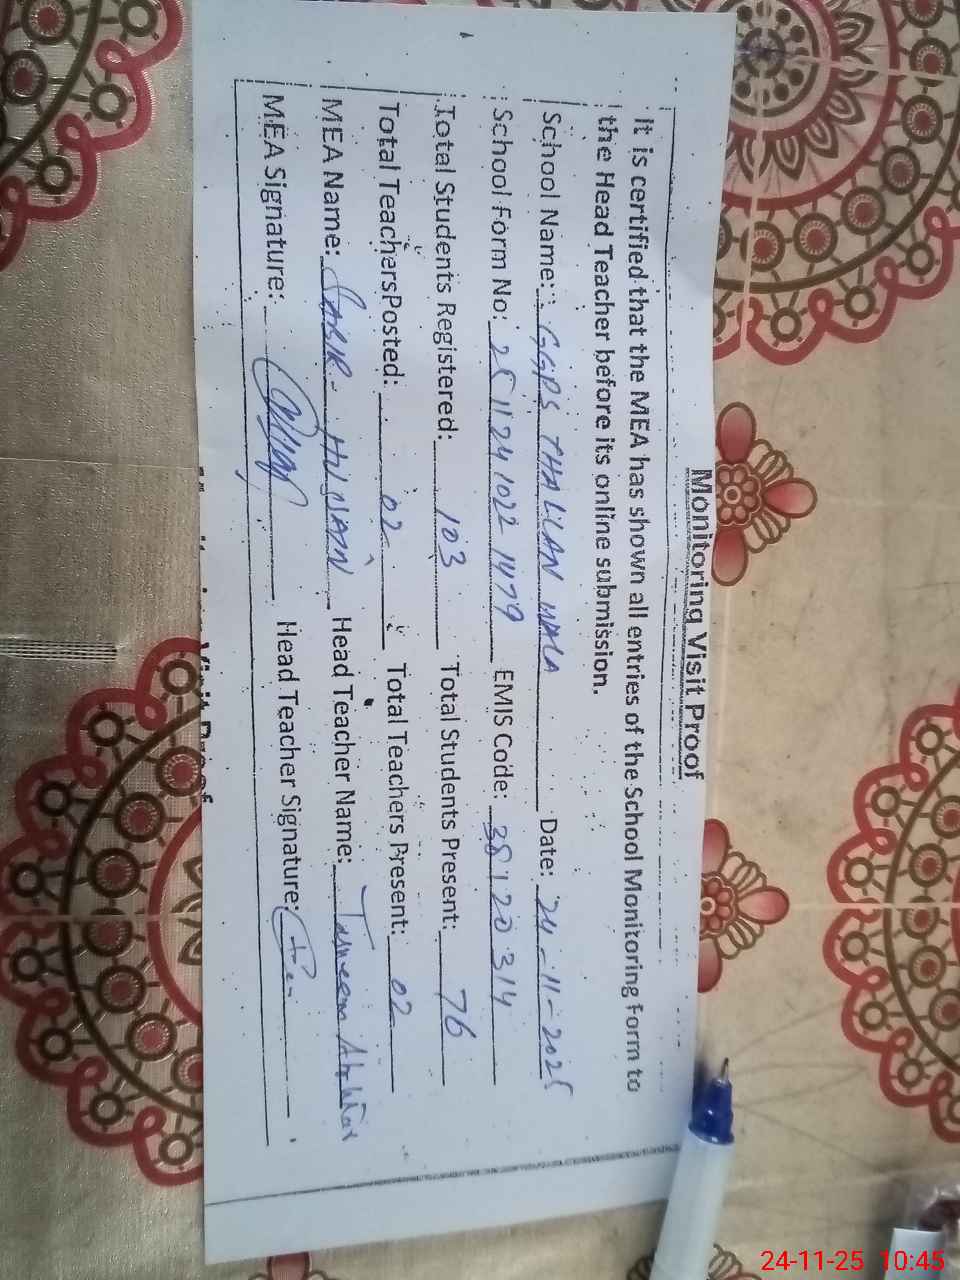 Monitoring Visit Proof
It is certified that the MEA has shown all entries of the School Monitoring Form to
the Head Teacher before its online submission.
School Name: GGPS THALLAN WALA Date: 24-11-2025
School Form No: 2511241022 1479 EMIS Code: 38120314
Total Students Registered: 103 Total Students Present: 76
Total TeachersPosted: 02 Total Teachers Present: 02
MEA Name: SABIR HUSSAIN Head Teacher Name: Tasneem Akhtar
MEA Signature: Head Teacher Signature:
Visit Proof
24-11-25 10:45